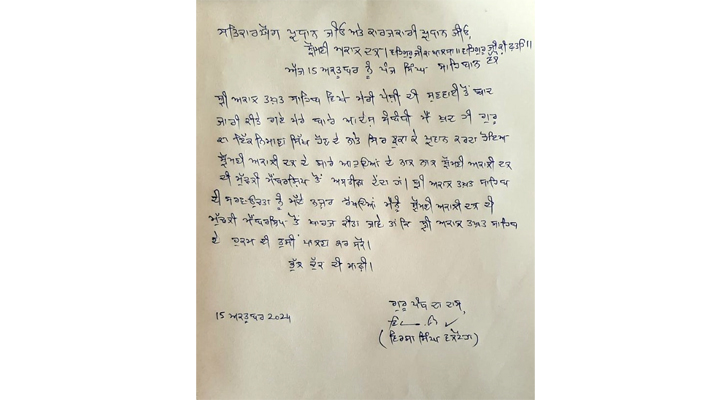 ਸਤਿਕਾਰਯੋਗ ਪ੍ਰਧਾਨ ਜੀਓ ਅਤੇ ਕਾਰਜਕਾਰੀ ਪ੍ਰਧਾਨ ਜੀਓ,
ਸ਼੍ਰੋਮਣੀ ਅਕਾਲੀ ਦਲ। ਵਾਹਿਗੁਰੂ ਜੀ ਕਾ ਖਾਲਸਾ॥ ਵਾਹਿਗੁਰੂ ਜੀ ਕੀ ਫਤਹਿ॥
ਅੱਜ 15 ਅਕਤੂਬਰ ਨੂੰ ਪੰਜ ਸਿੰਘ ਸਾਹਿਬਾਨ ਵੱਲੋਂ
ਸ੍ਰੀ ਅਕਾਲ ਤਖ਼ਤ ਸਾਹਿਬ ਵਿਖੇ ਮੇਰੀ ਪੇਸ਼ੀ ਦੀ ਸੁਣਵਾਈ ਤੋਂ ਬਾਦ
ਜਾਰੀ ਕੀਤੇ ਗਏ ਮੇਰੇ ਬਾਰੇ ਆਦੇਸ਼ ਸੰਬੰਧੀ ਮੈਂ ਖ਼ੁਦ ਹੀ ਗੁਰੂ
ਦਾ ਇੱਕ ਨਿਮਾਣਾ ਸਿੱਖ ਹੋਣ ਦੇ ਨਾਤੇ ਸਿਰ ਝੁਕਾ ਕੇ ਪ੍ਰਵਾਨ ਕਰਦਾ ਹੋਇਆ
ਸ਼੍ਰੋਮਣੀ ਅਕਾਲੀ ਦਲ ਦੇ ਸਾਰੇ ਅਹੁਦਿਆਂ ਦੇ ਨਾਲ ਨਾਲ ਸ਼੍ਰੋਮਣੀ ਅਕਾਲੀ ਦਲ
ਦੀ ਮੁੱਢਲੀ ਮੈਂਬਰਸ਼ਿਪ ਤੋਂ ਅਸਤੀਫ਼ਾ ਦੇਂਦਾ ਹਾਂ। ਸ੍ਰੀ ਅਕਾਲ ਤਖ਼ਤ ਸਾਹਿਬ
ਦੀ ਸਰਵਉੱਚਤਾ ਨੂੰ ਮੱਦੇ ਨਜ਼ਰ ਰੱਖਦਿਆਂ ਮੈਨੂੰ ਸ਼੍ਰੋਮਣੀ ਅਕਾਲੀ ਦਲ ਦੀ
ਮੁੱਢਲੀ ਮੈਂਬਰਸ਼ਿਪ ਤੋਂ ਖਾਰਜ ਕੀਤਾ ਜਾਏ ਤਾਂ ਕਿ ਸ੍ਰੀ ਅਕਾਲ ਤਖ਼ਤ ਸਾਹਿਬ
ਦੇ ਹੁਕਮ ਦੀ ਤੁਸੀਂ ਪਾਲਣਾ ਕਰ ਸਕੋ।
ਭੁੱਲ ਚੁੱਕ ਦੀ ਮਾਫ਼ੀ।
ਗੁਰੂ ਪੰਥ ਦਾ ਦਾਸ,
15 ਅਕਤੂਬਰ 2024
(ਵਿਰਸਾ ਸਿੰਘ ਵਲਟੋਹਾ)